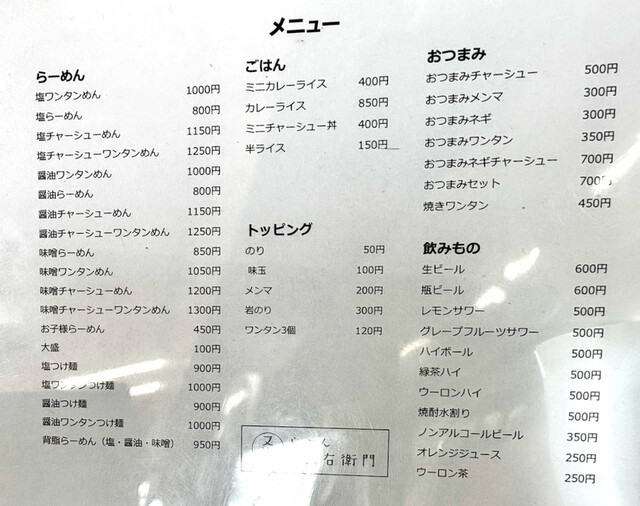 メニュー
らーめん
塩ワンタンめん 1000円
塩らーめん 800円
塩チャーシューめん 1150円
塩チャーシューワンタンめん 1250円
醤油ワンタンめん 1000円
醤油らーめん 800円
醤油チャーシューめん 1150円
醤油チャーシューワンタンめん 1250円
味噌らーめん 850円
味噌ワンタンめん 1050円
味噌チャーシューめん 1200円
味噌チャーシューワンタンめん 1300円
お子様らーめん 450円
大盛 100円
塩つけ麺 900円
塩ワンタンつけ麺 1000円
醤油つけ麺 900円
醤油ワンタンつけ麺 1000円
背脂らーめん（塩・醤油・味噌） 950円
ごはん
ミニカレーライス 400円
カレーライス 850円
ミニチャーシュー丼 400円
半ライス 150円
トッピング
のり 50円
味玉 100円
メンマ 200円
岩のり 300円
ワンタン3個 120円
右衛門
おつまみ
おつまみチャーシュー 500円
おつまみメンマ 300円
おつまみネギ 300円
おつまみワンタン 350円
おつまみネギチャーシュー 700円
おつまみセット 700円
焼きワンタン 450円
飲みもの
生ビール 600円
瓶ビール 600円
レモンサワー 500円
グレープフルーツサワー 500円
ハイボール 500円
緑茶ハイ 500円
ウーロンハイ 500円
焼酎水割り 500円
ノンアルコールビール 350円
オレンジジュース 250円
ウーロン茶 250円